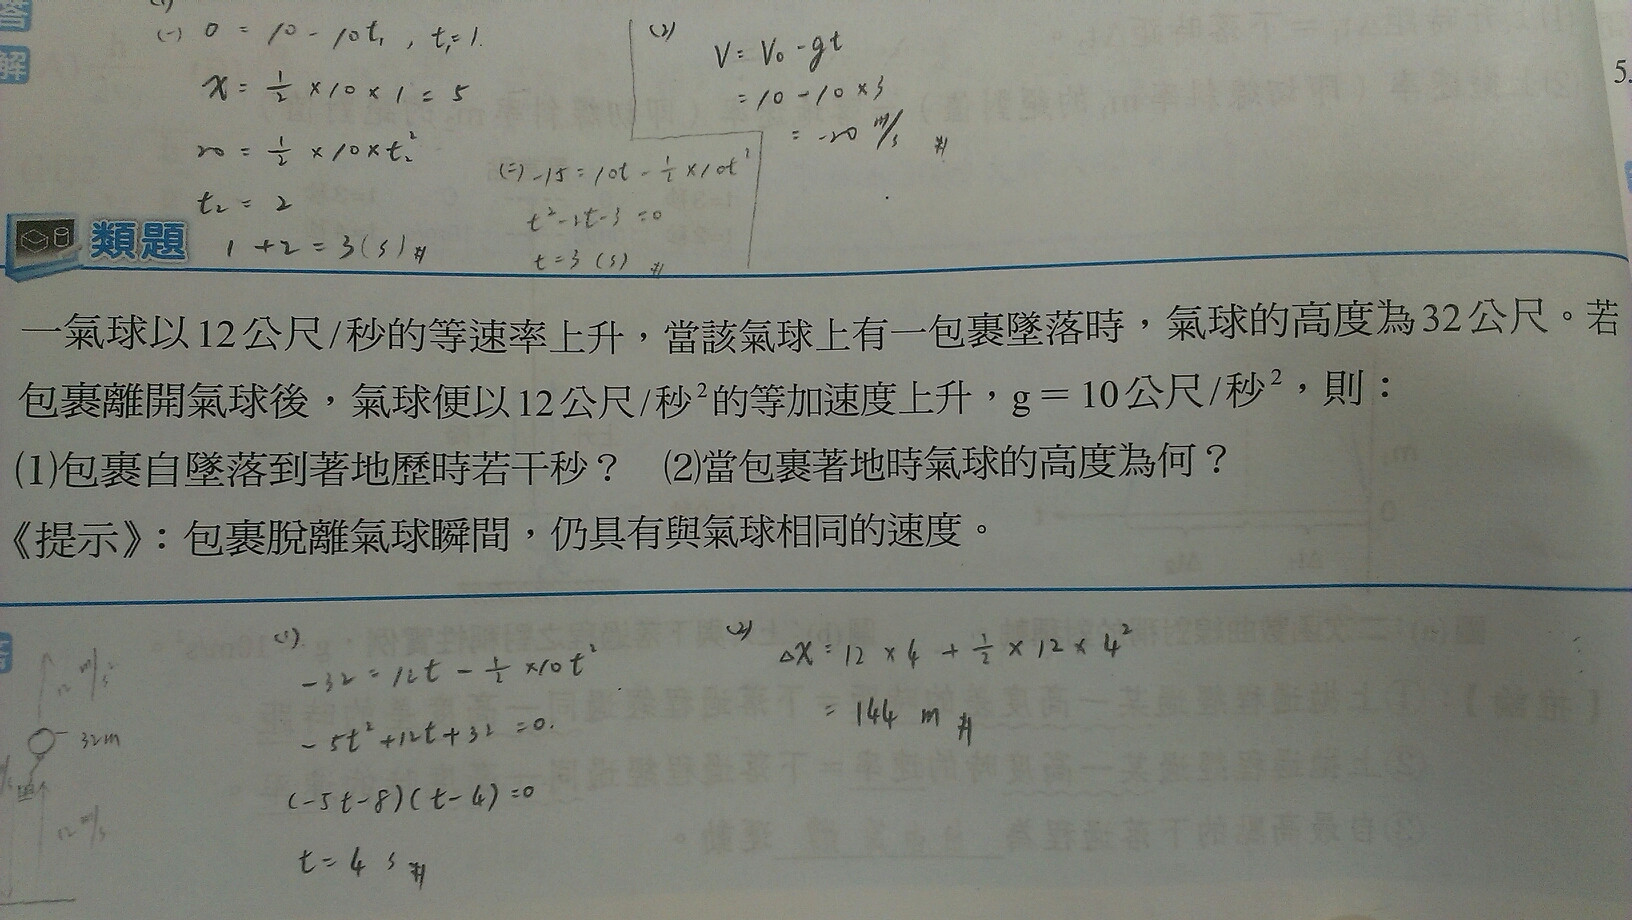 答
解
(1)
(一) 0 = 10 - 10t₁ , t₁= 1.
x = ½ × 10 × 1 = 5
20 = ½ × 10 × t₂²
t₂ = 2
1 + 2 = 3 (s) #
(二) -15 = 10t - ½ × 10t²
t² - 2t - 3 = 0
t = 3 (s) #
(2)
V = V₀ - gt
= 10 - 10 × 3
= -20 m/s #
5.
類題
一氣球以12公尺/秒的等速率上升，當該氣球上有一包裹墜落時，氣球的高度為32公尺。若
包裹離開氣球後，氣球便以12公尺/秒²的等加速度上升，g＝10公尺/秒²，則：
⑴包裹自墜落到著地歷時若干秒？ ⑵當包裹著地時氣球的高度為何？
《提示》：包裹脫離氣球瞬間，仍具有與氣球相同的速度。
答
12 m/s²
32m
12 m/s
(1)
-32 = 12t - ½ × 10t²
-5t² + 12t + 32 = 0.
(-5t-8)(t-4) = 0
t = 4 s #
(2)
△x = 12 × 4 + ½ × 12 × 4²
= 144 m #